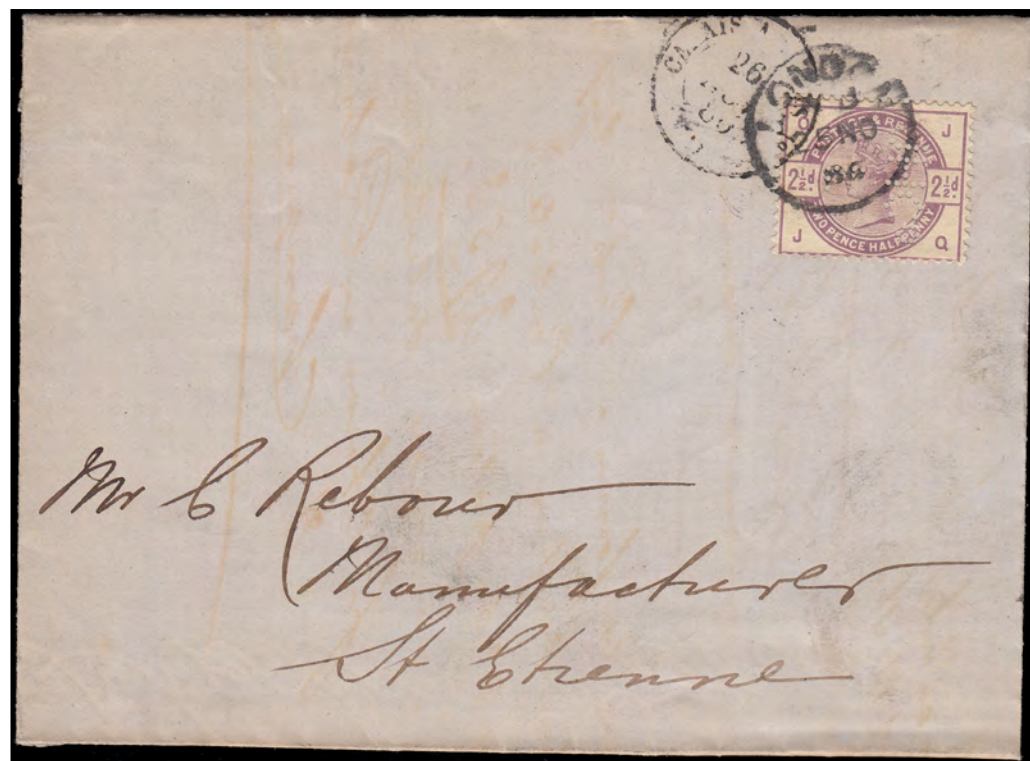 CALAIS A
26
LONDON
NO
86
Q J
POSTAGE & REVENUE
2½d 2½d
TWO PENCE HALFPENNY
J Q
Mr C Rebour
Manufacturer
St Etienne